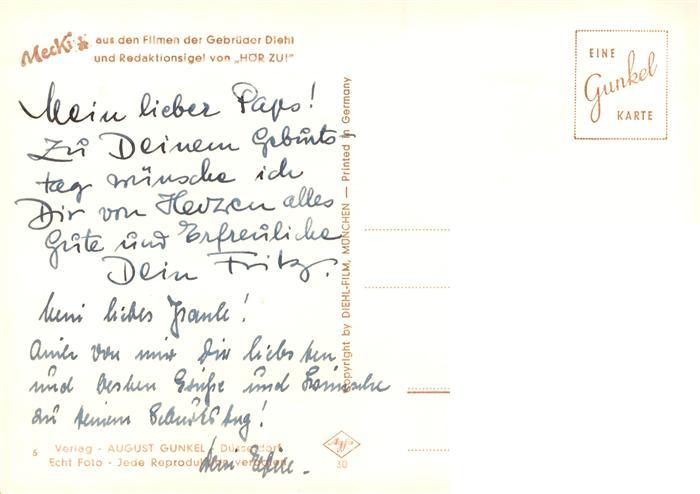 Mecki aus den Filmen der Gebrüder Diehl
und Redaktionsigel von „HÖR ZU!"
EINE
Gunkel
KARTE
Mein lieber Paps!
Zu Deinem Geburts-
tag wünsche ich
Dir von Herzen alles
Gute und Erfreuliche
Dein Fritz.
Mein liebes !
Auch von mir Dir liebsten
und besten Grüße und Wünsche
zu Deinem Geburtstag!
Dein
Copyright by DIEHL-FILM, MÜNCHEN — Printed in Germany
6 Verlag - AUGUST GUNKEL - Düsseldorf
Echt Foto - Jede Reproduktion verboten
Agfa
30